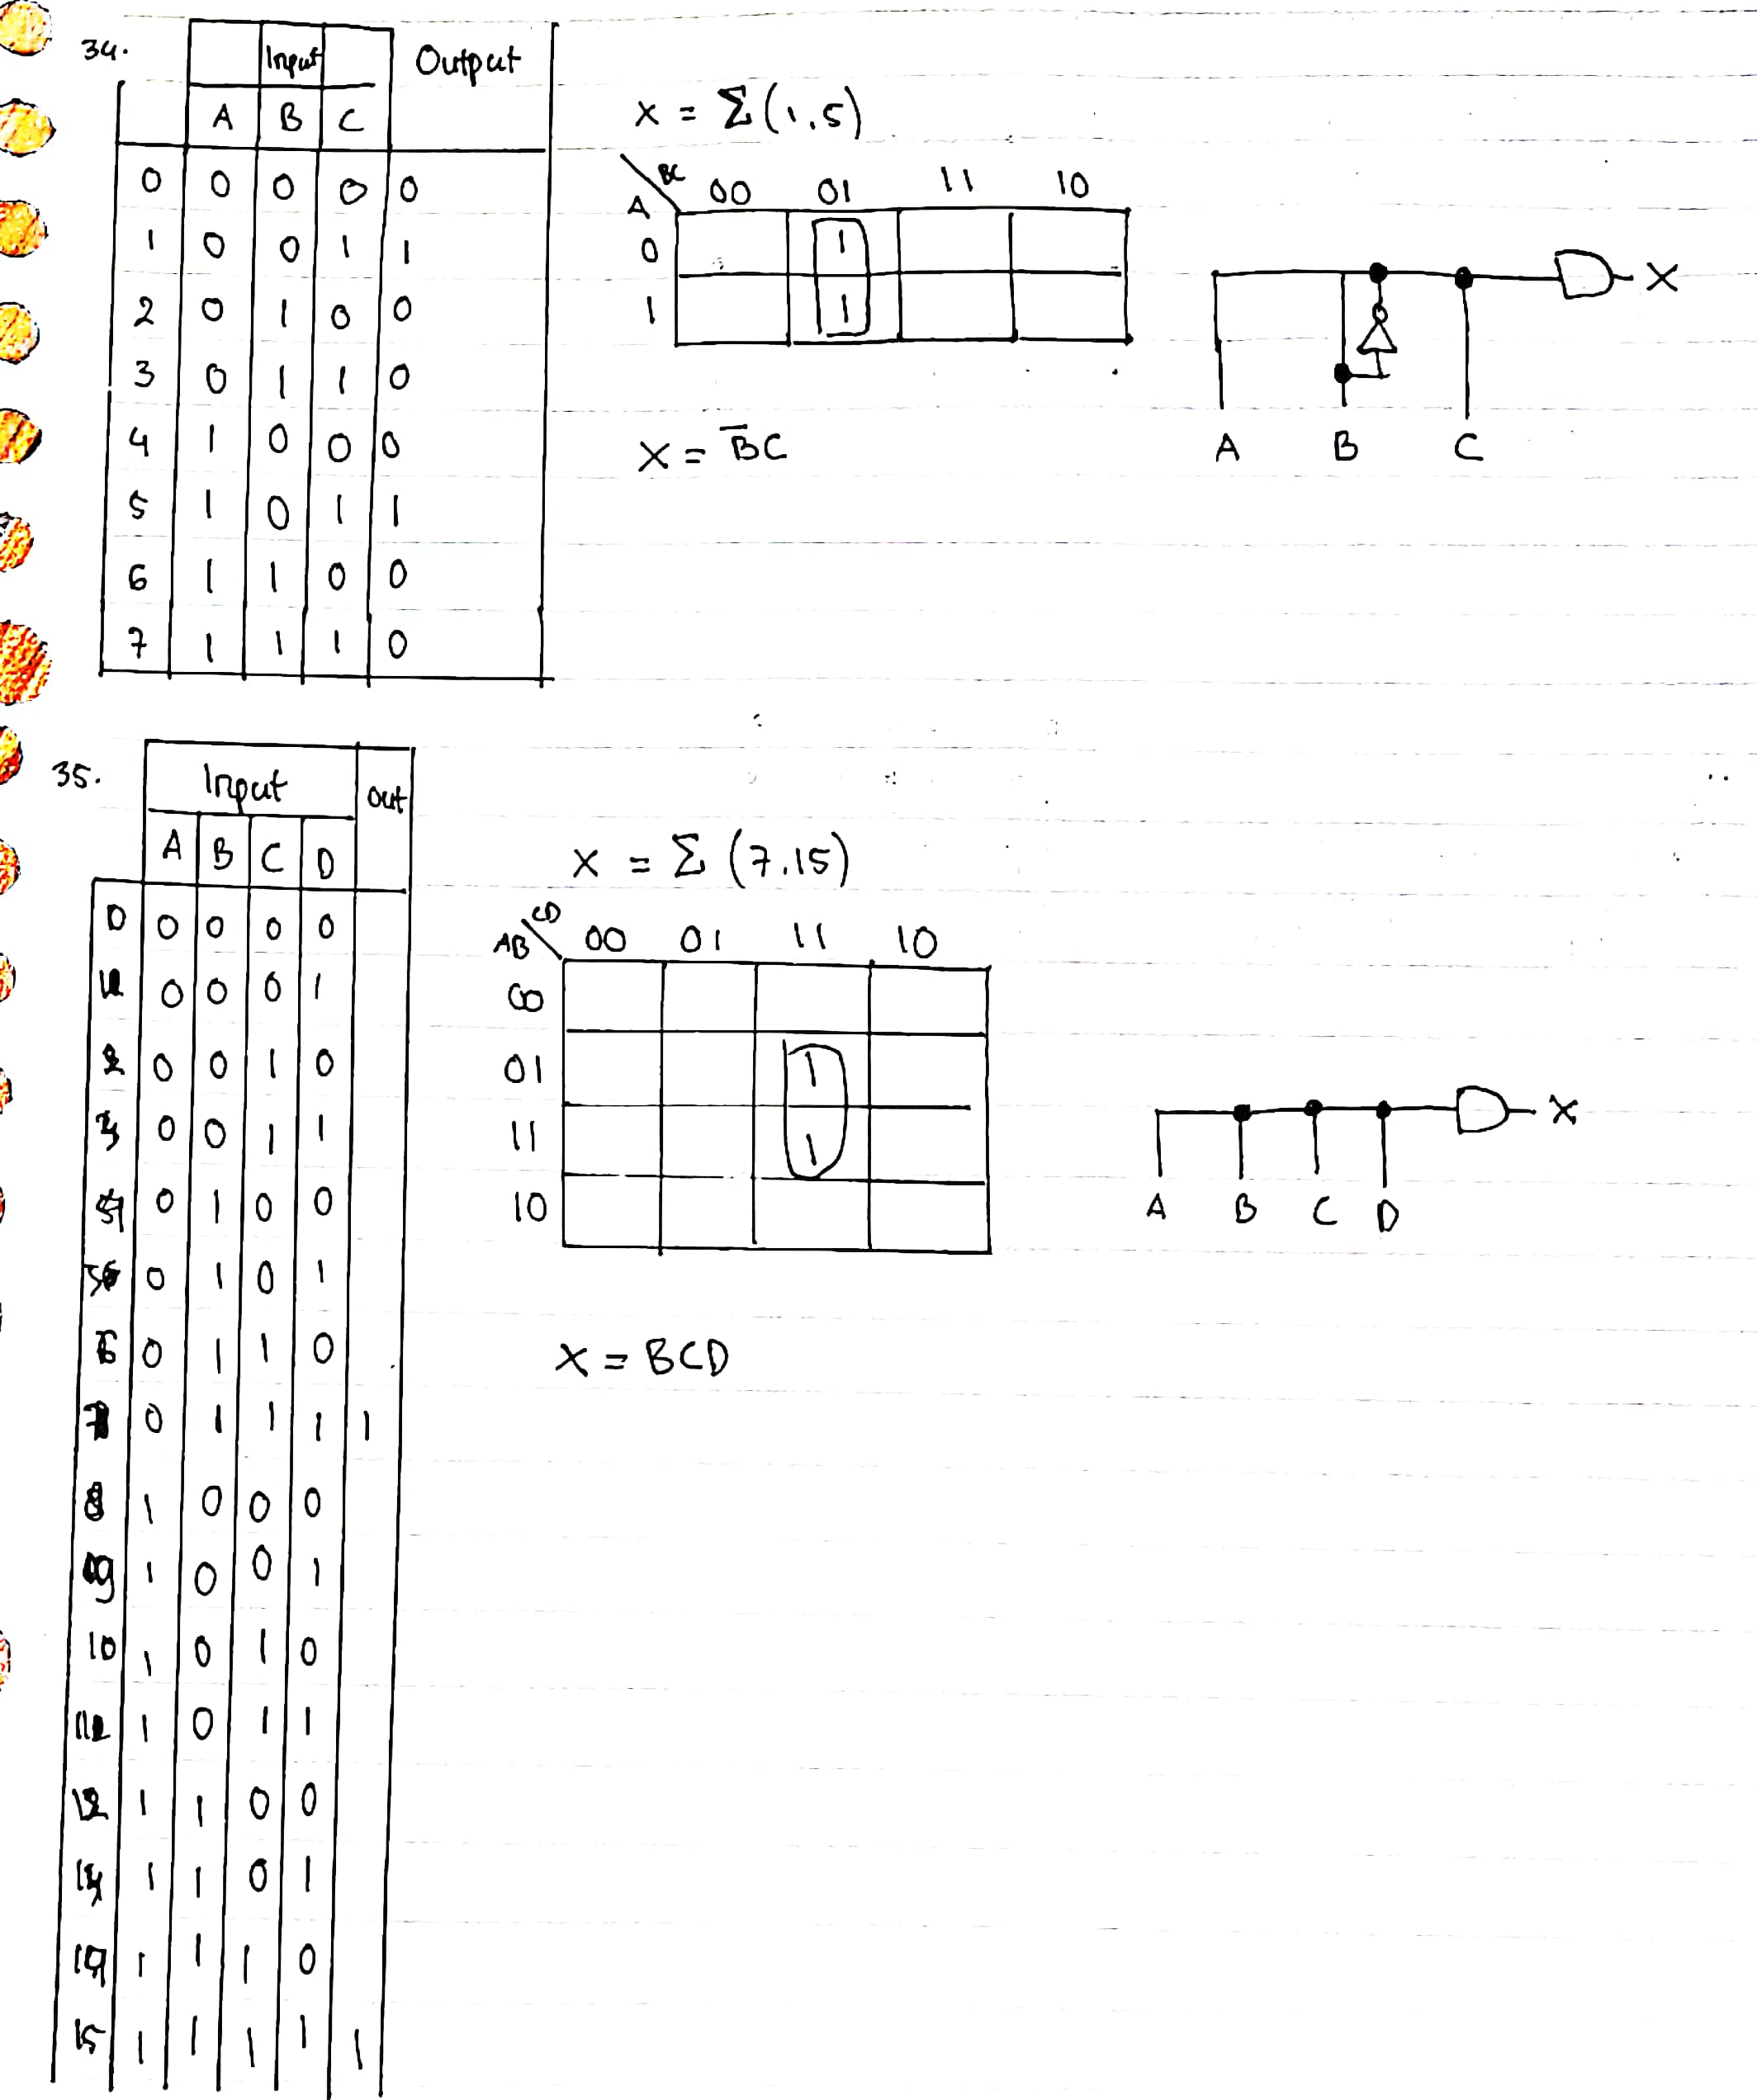 34.
Input Output
A B C
0 0 0 0 0
1 0 0 1 1
2 0 1 0 0
3 0 1 1 0
4 1 0 0 0
5 1 0 1 1
6 1 1 0 0
7 1 1 1 0
X = Σ(1,5)
A\BC 00 01 11 10
0 1
1 1
X = B̅C
X
A B C
35.
Input out
A B C D
0 0 0 0 0
1 0 0 0 1
2 0 0 1 0
3 0 0 1 1
4 0 1 0 0
5 0 1 0 1
6 0 1 1 0
7 0 1 1 1 1
8 1 0 0 0
9 1 0 0 1
10 1 0 1 0
11 1 0 1 1
12 1 1 0 0
13 1 1 0 1
14 1 1 1 0
15 1 1 1 1 1
X = Σ (7,15)
AB\CD 00 01 11 10
00
01 1
11 1
10
X = BCD
X
A B C D